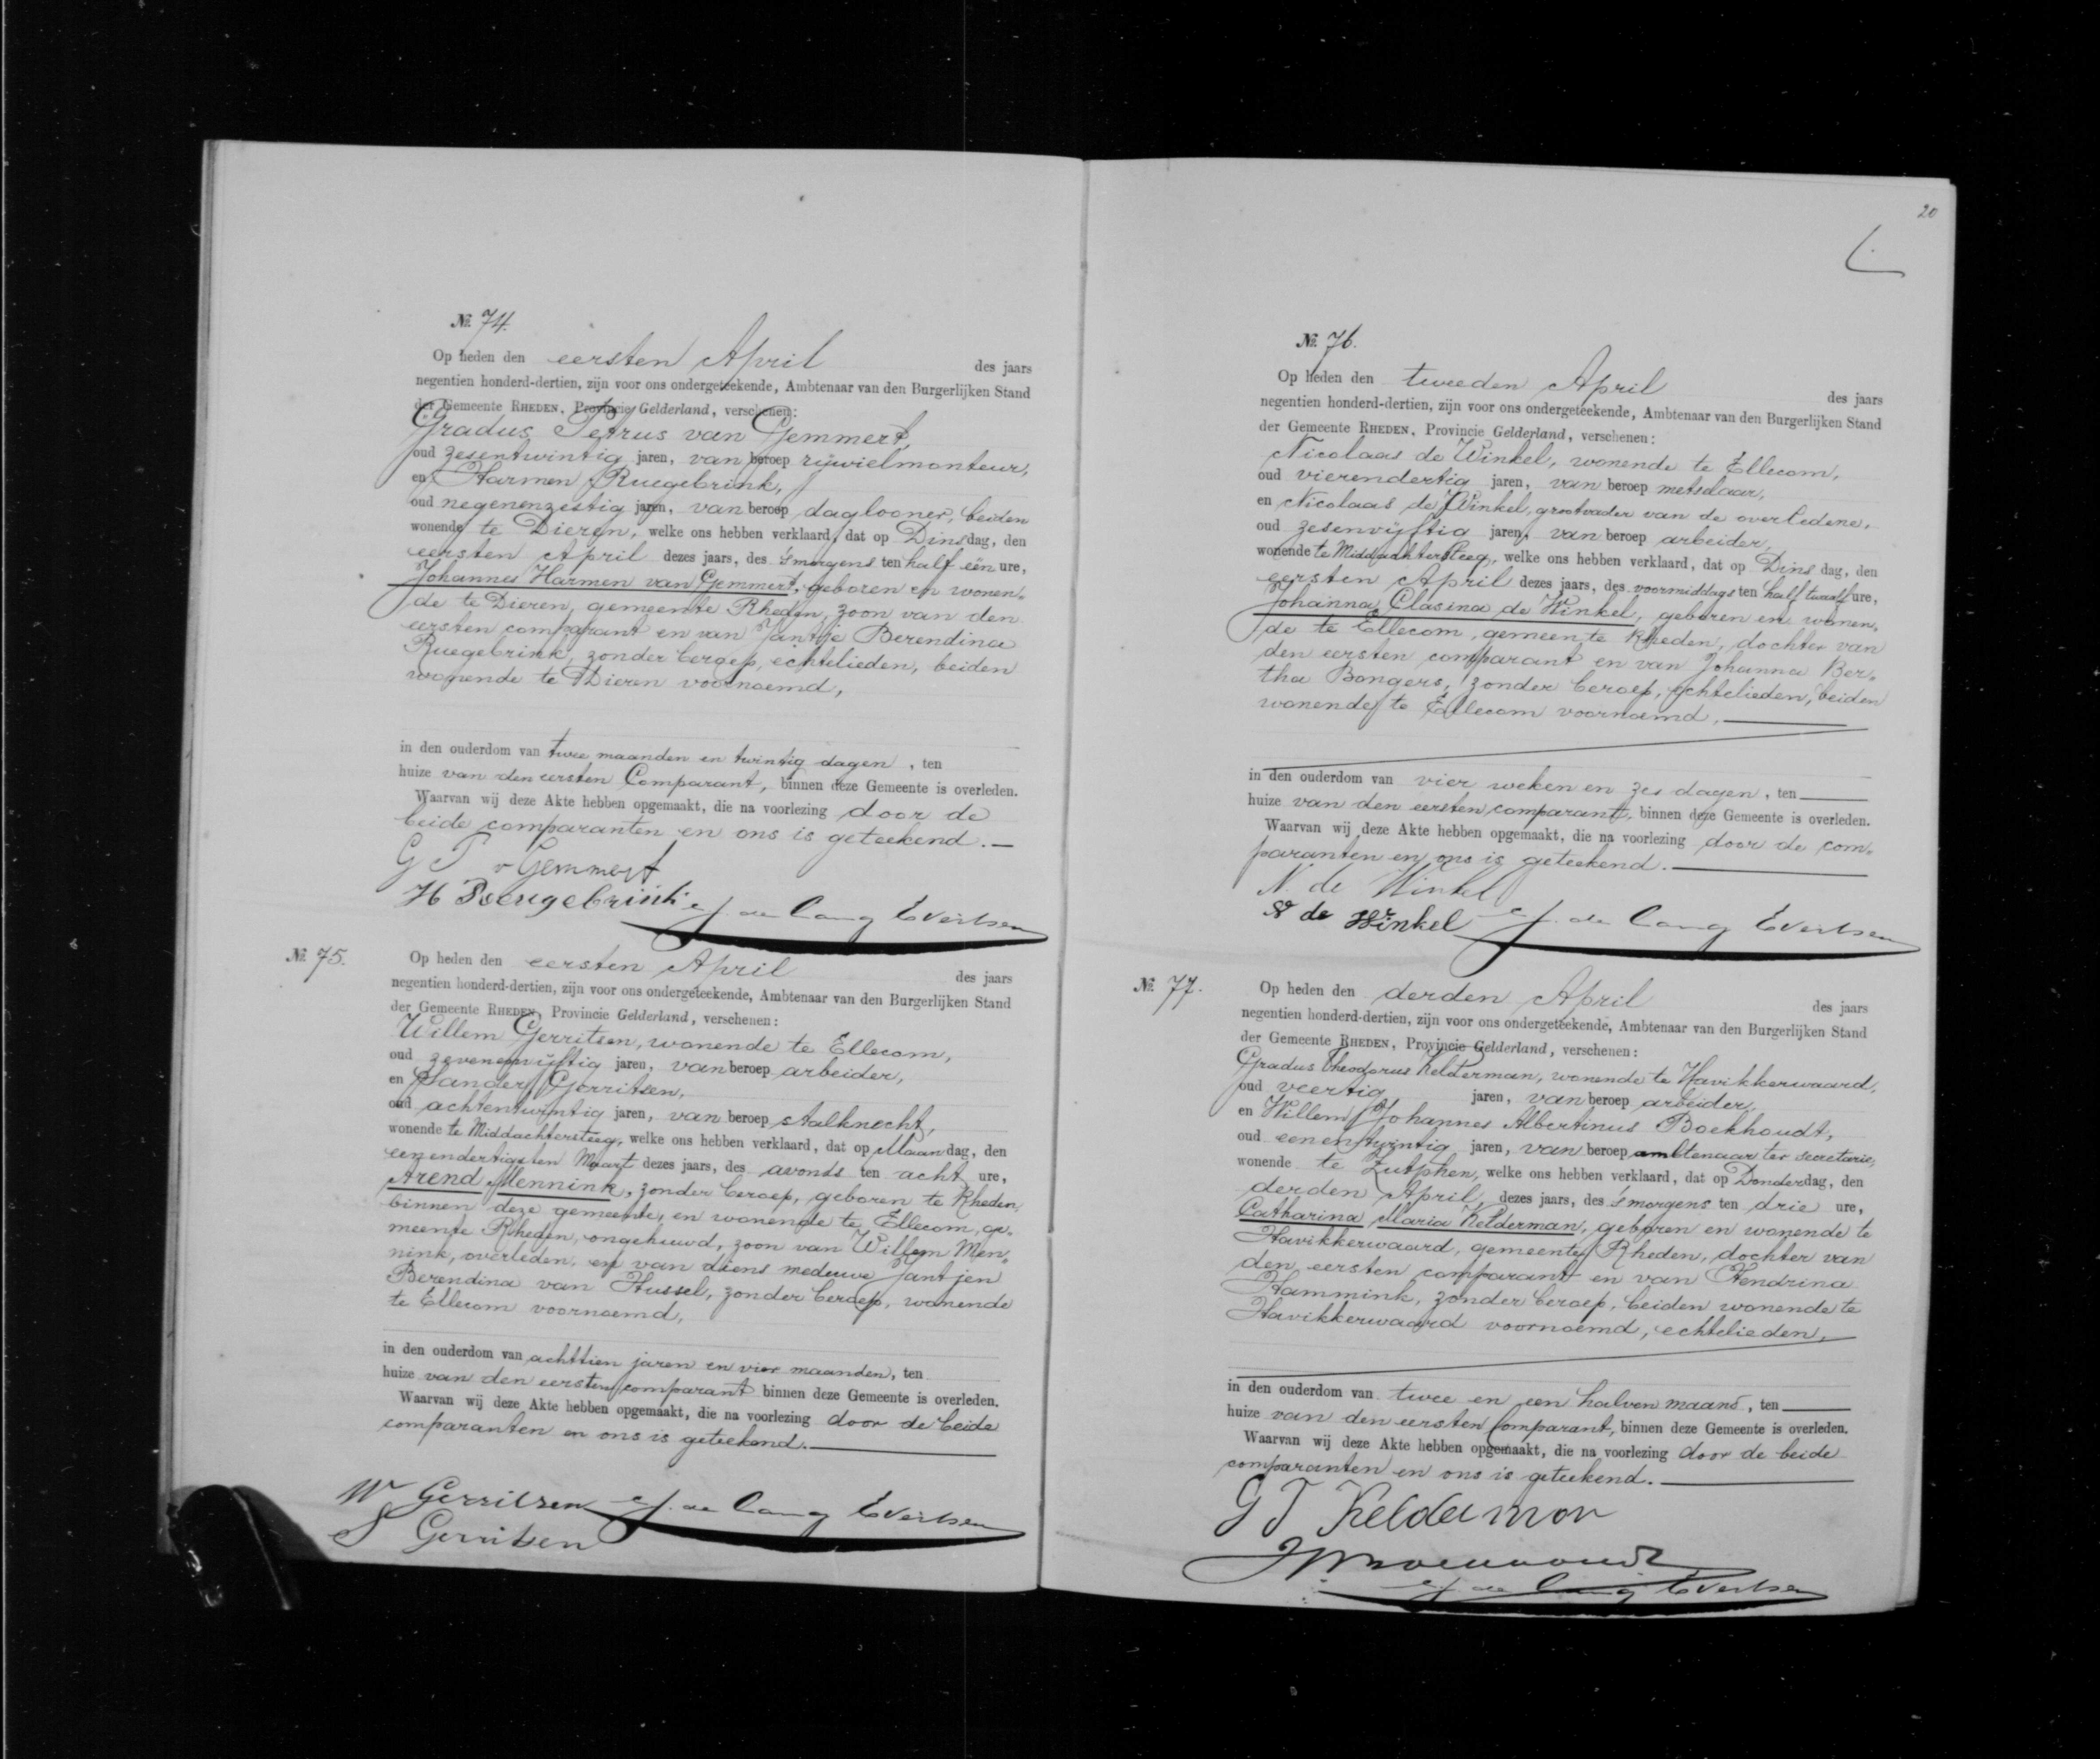 № 74.
Op heden den eersten April des jaars
negentien honderd-dertien, zijn voor ons ondergeteekende, Ambtenaar van den Burgerlijken Stand
der Gemeente RHEDEN, Provincie Gelderland, verschenen:
Gradus Petrus van Gemmert,
oud zesentwintig jaren, van beroep rijwielmonteur,
en Harmen Ruegebrink,
oud negenenzestig jaren, van beroep daglooner, beiden
wonende te Dieren, welke ons hebben verklaard, dat op Dinsdag, den
eersten April dezes jaars, des 's morgens ten half één ure,
Johannes Harmen van Gemmert, geboren en wonen-
de te Dieren, gemeente Rheden, zoon van den
eersten comparant en van Jantje Berendina
Ruegebrink, zonder beroep, echtelieden, beiden
wonende te Dieren voornoemd,
in den ouderdom van twee maanden en twintig dagen, ten
huize van den eersten Comparant, binnen deze Gemeente is overleden.
Waarvan wij deze Akte hebben opgemaakt, die na voorlezing door de
beide comparanten en ons is geteekend.
G P v Gemmert
H Reugebrink
№ 75.
Op heden den eersten April des jaars
negentien honderd-dertien, zijn voor ons ondergeteekende, Ambtenaar van den Burgerlijken Stand
der Gemeente RHEDEN, Provincie Gelderland, verschenen:
Willem Gerritsen, wonende te Ellecom,
oud zevenenvijftig jaren, van beroep arbeider,
en Sander Gerritsen,
oud achtentwintig jaren, van beroep stalknecht,
wonende te Middachtersteeg, welke ons hebben verklaard, dat op Maandag, den
eenendertigsten Maart dezes jaars, des avonds ten acht ure,
Arend Mennink, zonder beroep, geboren te Rheden,
binnen deze gemeente, en wonende te Ellecom, ge-
meente Rheden, ongehuwd, zoon van Willem Men-
nink, overleden, en van diens weduwe Jantjen
Berendina van Hussel, zonder beroep, wonende
te Ellecom voornoemd,
in den ouderdom van achttien jaren en vier maanden, ten
huize van den eersten comparant binnen deze Gemeente is overleden.
Waarvan wij deze Akte hebben opgemaakt, die na voorlezing door de beide
comparanten en ons is geteekend.
W Gerritsen
S Gerritsen
20
№ 76.
Op heden den tweeden April des jaars
negentien honderd-dertien, zijn voor ons ondergeteekende, Ambtenaar van den Burgerlijken Stand
der Gemeente RHEDEN, Provincie Gelderland, verschenen:
Nicolaas de Winkel, wonende te Ellecom,
oud vierendertig jaren, van beroep metselaar,
en Nicolaas de Winkel, grootvader van de overledene,
oud zesenvijftig jaren, van beroep arbeider,
wonende te Middachtersteeg, welke ons hebben verklaard, dat op Dinsdag, den
eersten April dezes jaars, des voormiddags ten half twaalf ure,
Johanna Clasina de Winkel, geboren en wonen-
de te Ellecom, gemeente Rheden, dochter van
den eersten comparant en van Johanna Ber-
tha Bongers, zonder beroep, echtelieden, beiden
wonende te Ellecom voornoemd,
in den ouderdom van vier weken en zes dagen, ten
huize van den eersten comparant, binnen deze Gemeente is overleden.
Waarvan wij deze Akte hebben opgemaakt, die na voorlezing door de com-
paranten en ons is geteekend.
N. de Winkel
N de Winkel
№ 77.
Op heden den derden April des jaars
negentien honderd-dertien, zijn voor ons ondergeteekende, Ambtenaar van den Burgerlijken Stand
der Gemeente RHEDEN, Provincie Gelderland, verschenen:
Gradus Theodorus Kelderman, wonende te Havikkerwaard,
oud veertig jaren, van beroep arbeider,
en Willem Johannes Albertinus Boekhoudt,
oud eenentwintig jaren, van beroep ambtenaar ter secretarie,
wonende te Zutphen, welke ons hebben verklaard, dat op Donderdag, den
derden April dezes jaars, des 's morgens ten drie ure,
Catharina Maria Kelderman, geboren en wonende te
Havikkerwaard, gemeente Rheden, dochter van
den eersten comparant en van Hendrina
Hammink, zonder beroep, beiden wonende te
Havikkerwaard voornoemd, echtelieden,
in den ouderdom van twee en een halven maand, ten
huize van den eersten Comparant, binnen deze Gemeente is overleden.
Waarvan wij deze Akte hebben opgemaakt, die na voorlezing door de beide
comparanten en ons is geteekend.
G T Kelderman